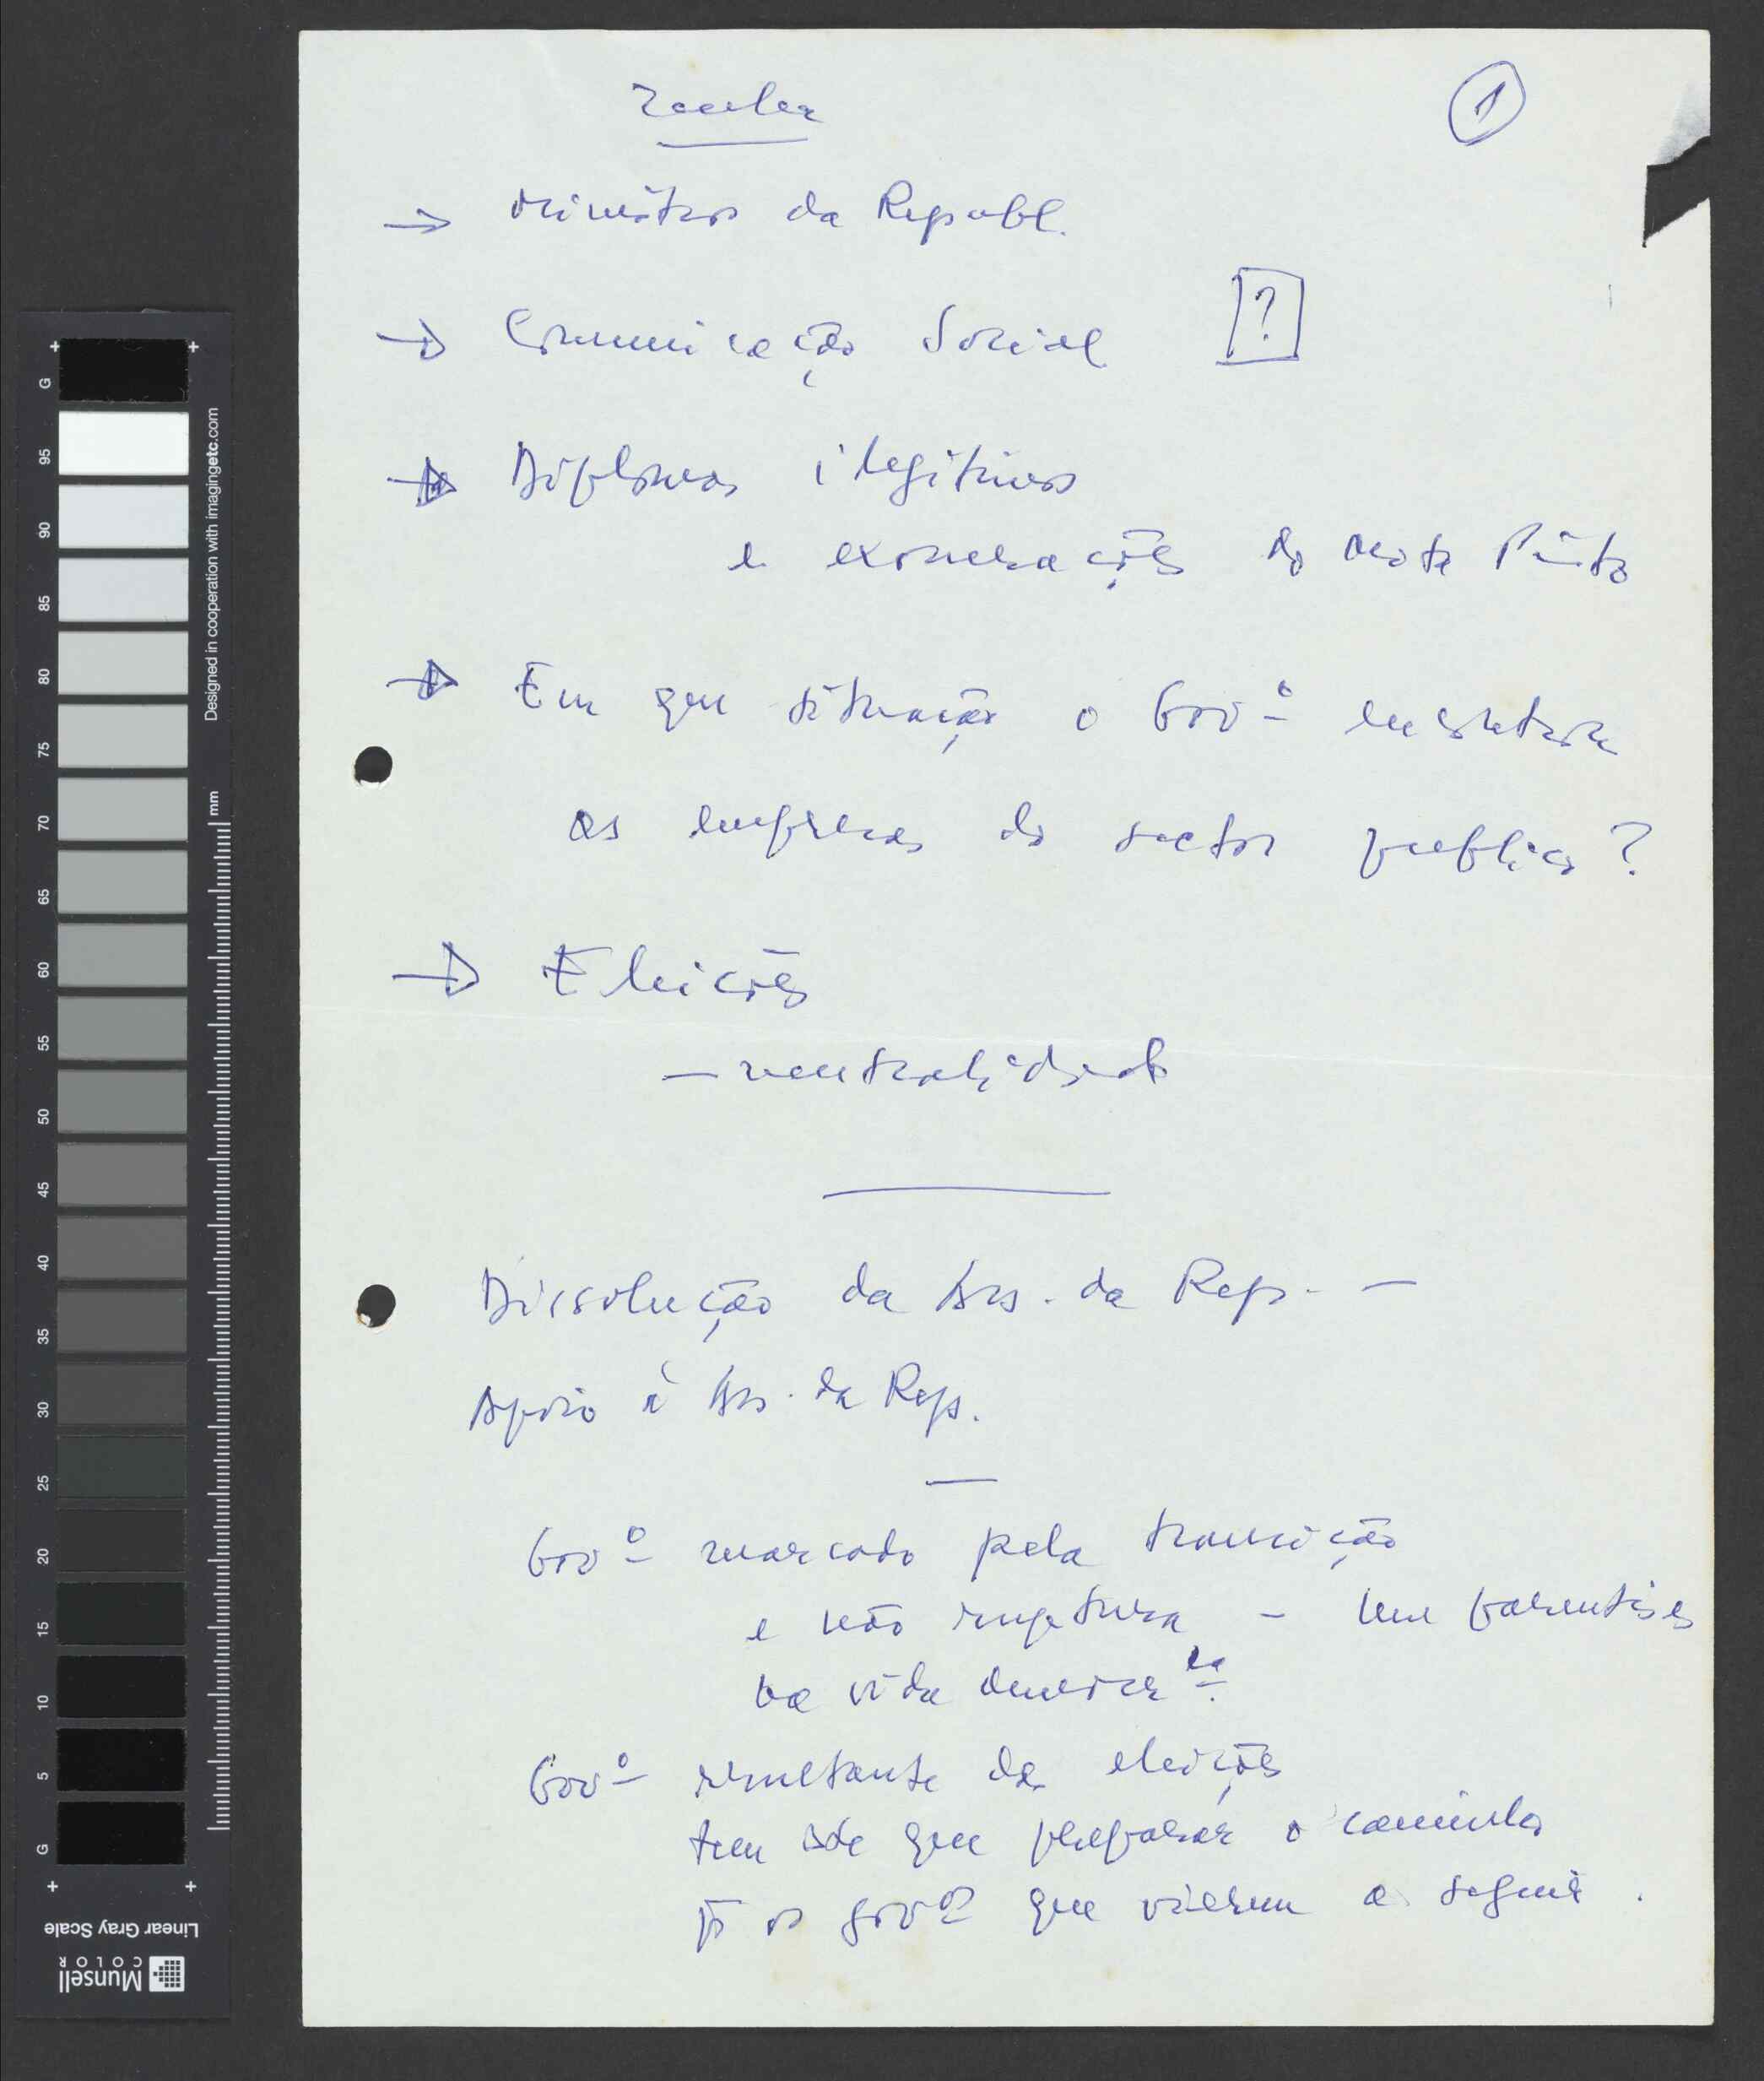 Zenha
1
→ Ministros da Republ.
→ Comunicação Social [?]
→ Diplomas ilegitimos
e exonerações do Mota Pinto
→ Em que situação o Govº encontrará
as empresas do sector publico?
→ Eleições
— neutralidade
Dissolução da Ass. da Rep. —
Apoio à Ass. da Rep.
—
Govº marcado pela transição
e não ruptura - um parentesis
na vida
Govº resultante das eleições
tem que preparar o caminho
pª os govos que vierem a seguir.
G
95
90
85
80
75
70
65
60
55
50
45
40
35
30
25
20
15
10
5
G
Designed in cooperation with imagingetc.com
mm
Linear Gray Scale
Munsell
COLOR